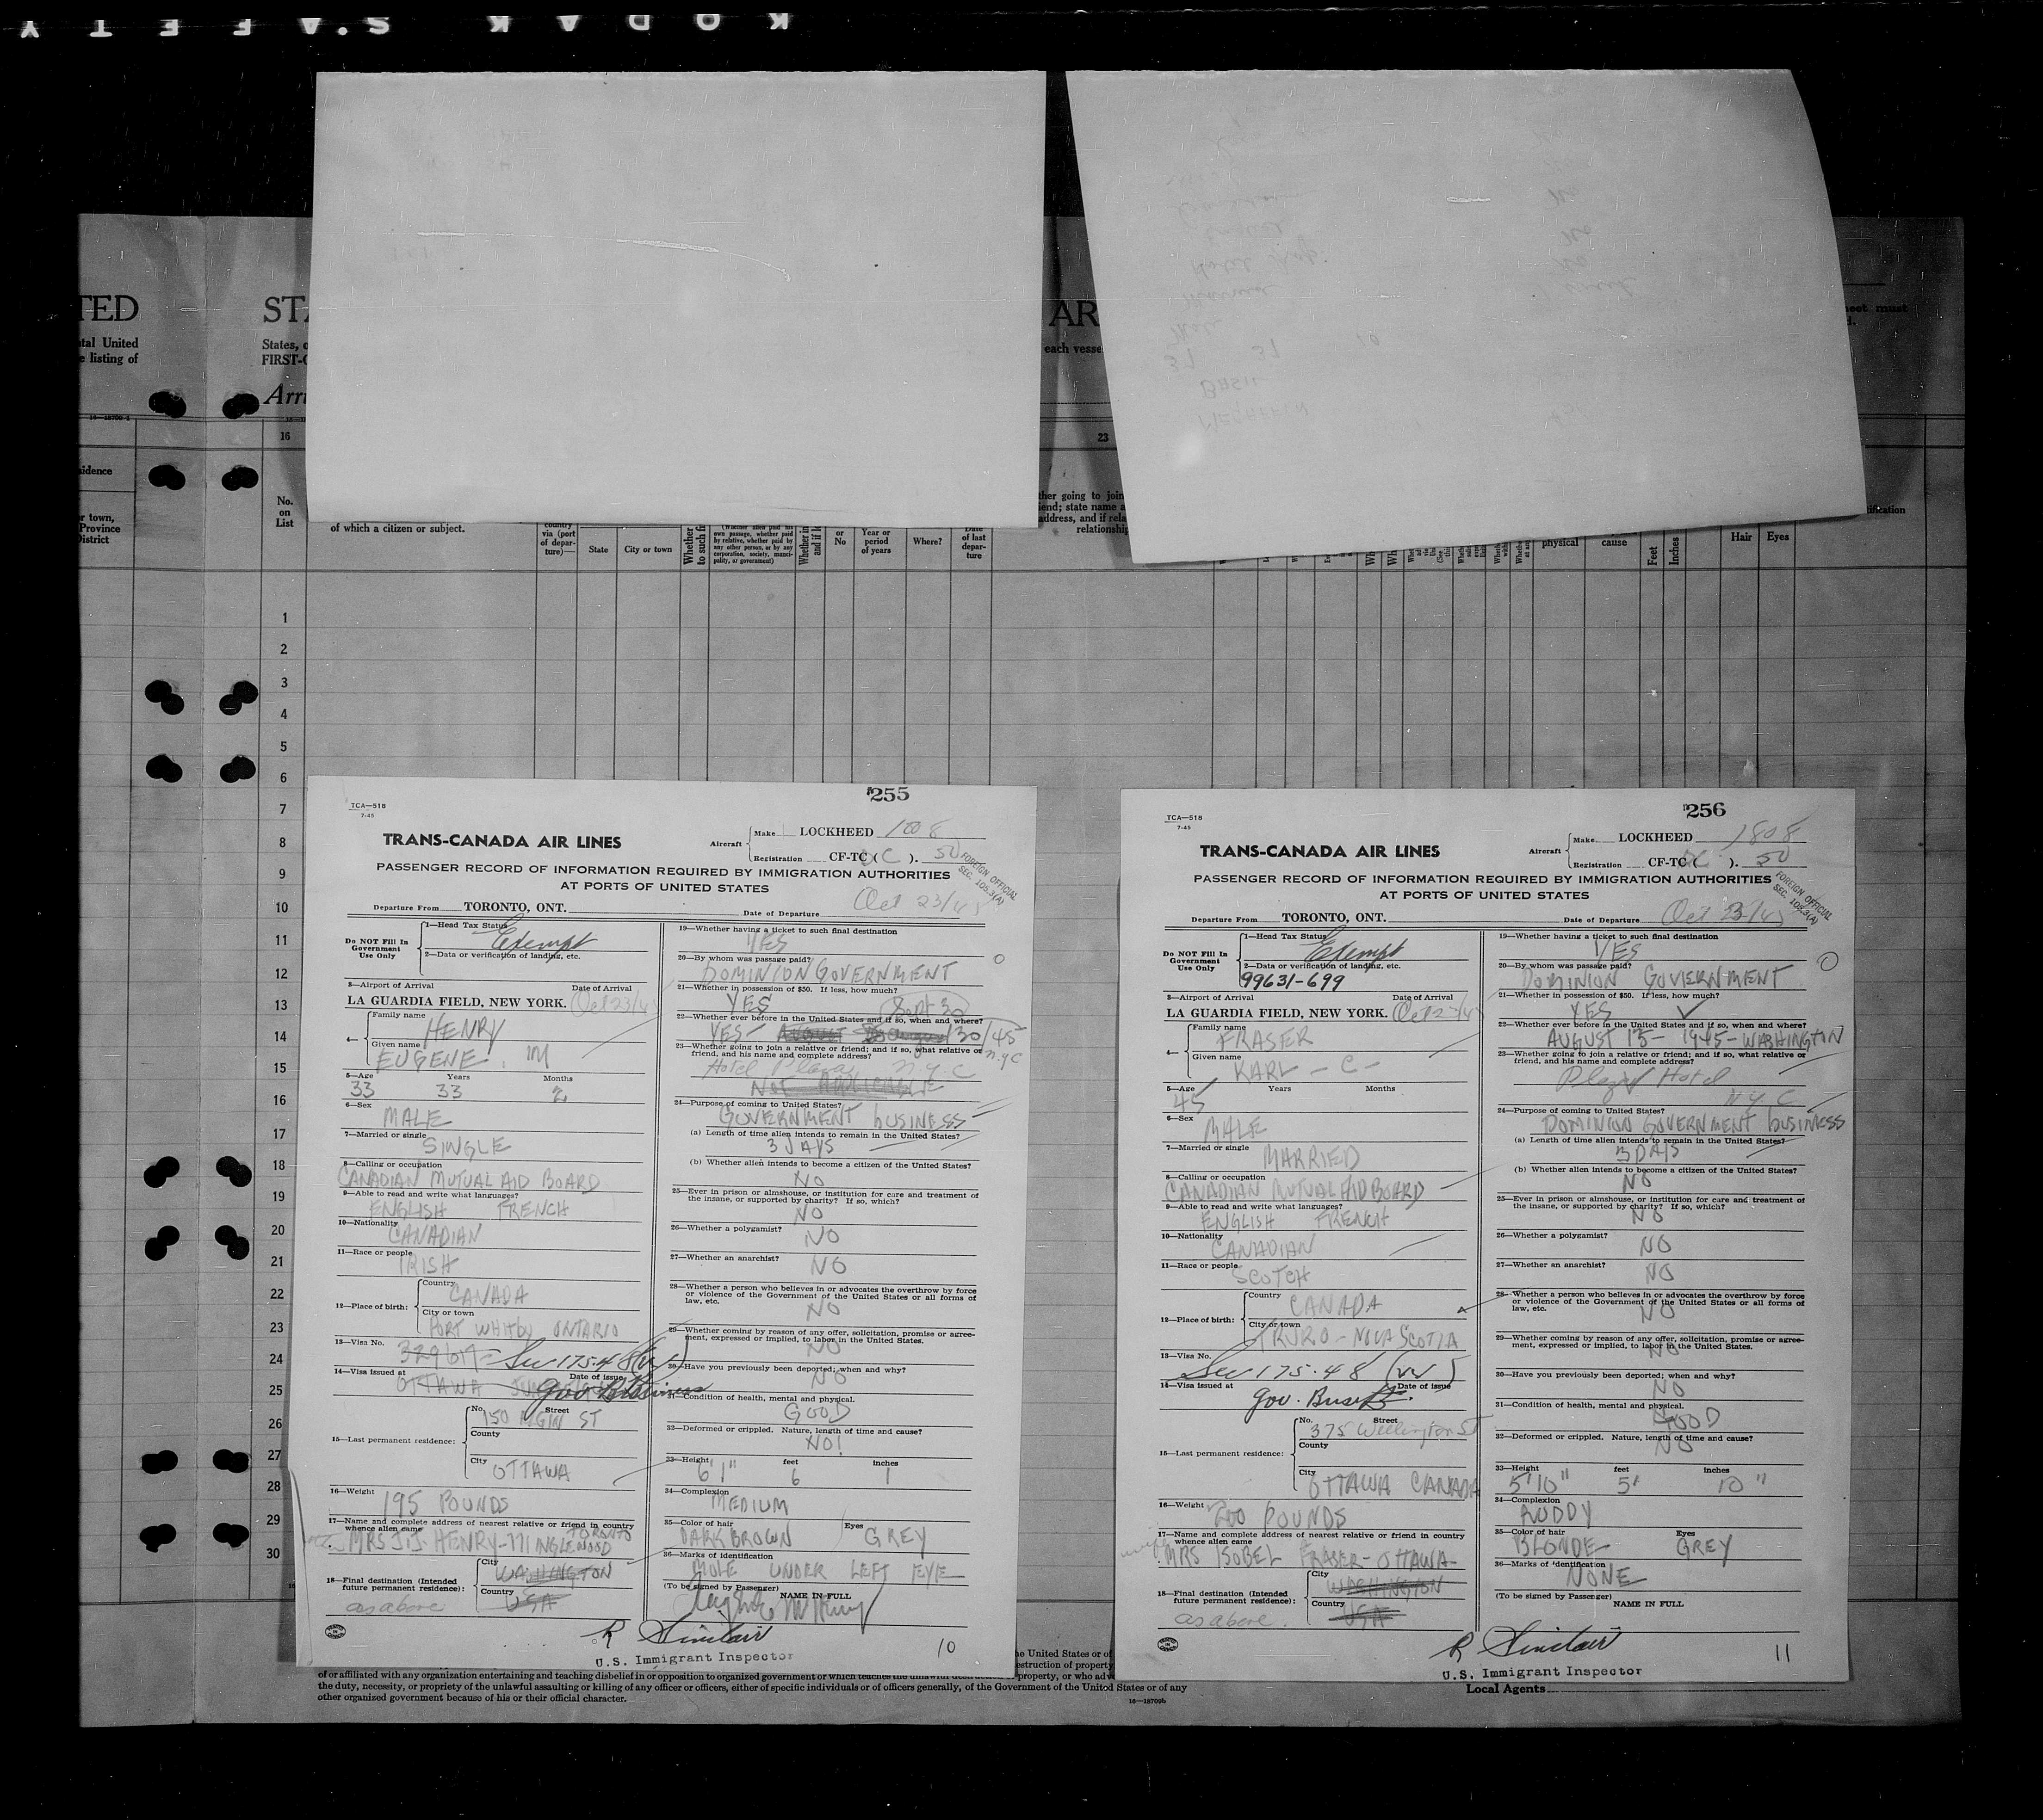 KODAK SAFETY
TED
STA
AR
eet must
tal United
e listing of
States, o
FIRST-C
each vesse
Arri
16—18709-1
16
23
sidence
r town,
Province
District
No.
on
List
of which a citizen or subject.
country
via (port
of depar-
ture)—
State
City or town
Whether
to such f
(Whether alien paid his
own passage, whether paid
by relative, whether paid by
any other person, or by any
corporation, society, munici-
pality, or government)
or
No
Year or
period
of years
Where?
Date
of last
depar-
ture
ther going to join
iend; state name a
address, and if rela
relationship
physical
cause
Feet
Inches
Hair
Eyes
1
2
3
4
5
6
7
8
9
10
11
12
13
14
15
16
17
18
19
20
21
22
23
24
25
26
27
28
29
30
255
TCA—518
7-45
TRANS-CANADA AIR LINES
Aircraft
Make LOCKHEED 1808
Registration CF-TC ( C ). 50
PASSENGER RECORD OF INFORMATION REQUIRED BY IMMIGRATION AUTHORITIES
AT PORTS OF UNITED STATES
FOREIGN OFFICIAL
SEC. 105.3(A)
Departure From TORONTO, ONT. Date of Departure Oct 23/45
Do NOT Fill In
Government
Use Only
1—Head Tax Status Exempt
2—Data or verification of landing, etc.
3—Airport of Arrival Date of Arrival
LA GUARDIA FIELD, NEW YORK. Oct 23/45
4— Family name HENRY
Given name EUGENE. M
5—Age Years Months
33 33 2
6—Sex
MALE
7—Married or single
SINGLE
8—Calling or occupation
CANADIAN MUTUAL AID BOARD
9—Able to read and write what languages?
ENGLISH FRENCH
10—Nationality
CANADIAN
11—Race or people
IRISH
12—Place of birth: Country CANADA
City or town
PORT WHITBY ONTARIO
13—Visa No. 329617 Sec 175.48(w)
14—Visa issued at Date of issue
OTTAWA Gov Business
15—Last permanent residence:
No. Street
150 ELGIN ST
County
City
OTTAWA
16—Weight
195 POUNDS
17—Name and complete address of nearest relative or friend in country
whence alien came
MRS J.J. HENRY-771 INGLEWOOD TORONTO
18—Final destination (Intended
future permanent residence):
City WASHINGTON
Country USA
as above
19—Whether having a ticket to such final destination
YES
20—By whom was passage paid?
DOMINION GOVERNMENT
21—Whether in possession of $50. If less, how much?
YES Sept 30
22—Whether ever before in the United States and if so, when and where?
YES- AUGUST 30/45
N.Y.C
23—Whether going to join a relative or friend; and if so, what relative or
friend, and his name and complete address?
Hotel Plaza N.Y.C
NOT APPLICABLE
24—Purpose of coming to United States?
GOVERNMENT BUSINESS
(a) Length of time alien intends to remain in the United States?
3 DAYS
(b) Whether alien intends to become a citizen of the United States?
NO
25—Ever in prison or almshouse, or institution for care and treatment of
the insane, or supported by charity? If so, which?
NO
26—Whether a polygamist?
NO
27—Whether an anarchist?
NO
28—Whether a person who believes in or advocates the overthrow by force
or violence of the Government of the United States or all forms of
law, etc.
NO
29—Whether coming by reason of any offer, solicitation, promise or agree-
ment, expressed or implied, to labor in the United States.
NO
30—Have you previously been deported; when and why?
NO
31—Condition of health, mental and physical.
GOOD
32—Deformed or crippled. Nature, length of time and cause?
NO!
33—Height feet inches
6'1" 6 1
34—Complexion
MEDIUM
35—Color of hair Eyes
DARK BROWN GREY
36—Marks of identification
MOLE UNDER LEFT EYE
(To be signed by Passenger) NAME IN FULL
R Sinclair
U.S. Immigrant Inspector
10
256
TCA—518
7-45
TRANS-CANADA AIR LINES
Aircraft
Make LOCKHEED 1808
Registration CF-TC ( C ). 50
PASSENGER RECORD OF INFORMATION REQUIRED BY IMMIGRATION AUTHORITIES
AT PORTS OF UNITED STATES
FOREIGN OFFICIAL
SEC. 105.3(A)
Departure From TORONTO, ONT. Date of Departure Oct 23/45
Do NOT Fill In
Government
Use Only
1—Head Tax Status Exempt
2—Data or verification of landing, etc.
99631-699
3—Airport of Arrival Date of Arrival
LA GUARDIA FIELD, NEW YORK. Oct 23/45
4— Family name
FRASER
Given name
KARL - C -
5—Age Years Months
45
6—Sex
MALE
7—Married or single
MARRIED
8—Calling or occupation
CANADIAN MUTUAL AID BOARD
9—Able to read and write what languages?
ENGLISH FRENCH
10—Nationality
CANADIAN
11—Race or people
SCOTCH
12—Place of birth: Country
CANADA
City or town
TRURO - NOVA SCOTIA
13—Visa No.
Sec 175.48 (w)
14—Visa issued at Date of issue
Gov. Business
15—Last permanent residence:
No. Street
375 Wellington St
County
City
OTTAWA CANADA
16—Weight
200 POUNDS
17—Name and complete address of nearest relative or friend in country
whence alien came
MRS ISOBEL FRASER-OTTAWA-
18—Final destination (Intended
future permanent residence):
City
WASHINGTON
Country
USA
as above.
19—Whether having a ticket to such final destination
YES
20—By whom was passage paid?
DOMINION GOVERNMENT
21—Whether in possession of $50. If less, how much?
YES
22—Whether ever before in the United States and if so, when and where?
AUGUST 15- 1945-WASHINGTON
23—Whether going to join a relative or friend; and if so, what relative or
friend, and his name and complete address?
Plaza Hotel
N.Y.C
24—Purpose of coming to United States?
DOMINION GOVERNMENT BUSINESS
(a) Length of time alien intends to remain in the United States?
3 DAYS
(b) Whether alien intends to become a citizen of the United States?
NO
25—Ever in prison or almshouse, or institution for care and treatment of
the insane, or supported by charity? If so, which?
NO
26—Whether a polygamist?
NO
27—Whether an anarchist?
NO
28—Whether a person who believes in or advocates the overthrow by force
or violence of the Government of the United States or all forms of
law, etc.
NO
29—Whether coming by reason of any offer, solicitation, promise or agree-
ment, expressed or implied, to labor in the United States.
NO
30—Have you previously been deported; when and why?
NO
31—Condition of health, mental and physical.
GOOD
32—Deformed or crippled. Nature, length of time and cause?
NO
33—Height feet inches
5'10" 5' 10"
34—Complexion
RUDDY
35—Color of hair Eyes
BLONDE GREY
36—Marks of identification
NONE
(To be signed by Passenger)
NAME IN FULL
R Sinclair
U.S. Immigrant Inspector
11
he United States or of
estruction of property
of or affiliated with any organization entertaining and teaching disbelief in or opposition to organized government or which teaches the unlawful destruction of property, or who adv
the duty, necessity, or propriety of the unlawful assaulting or killing of any officer or officers, either of specific individuals or of officers generally, of the Government of the United States or of any
other organized government because of his or their official character.
16—18709b
Local Agents